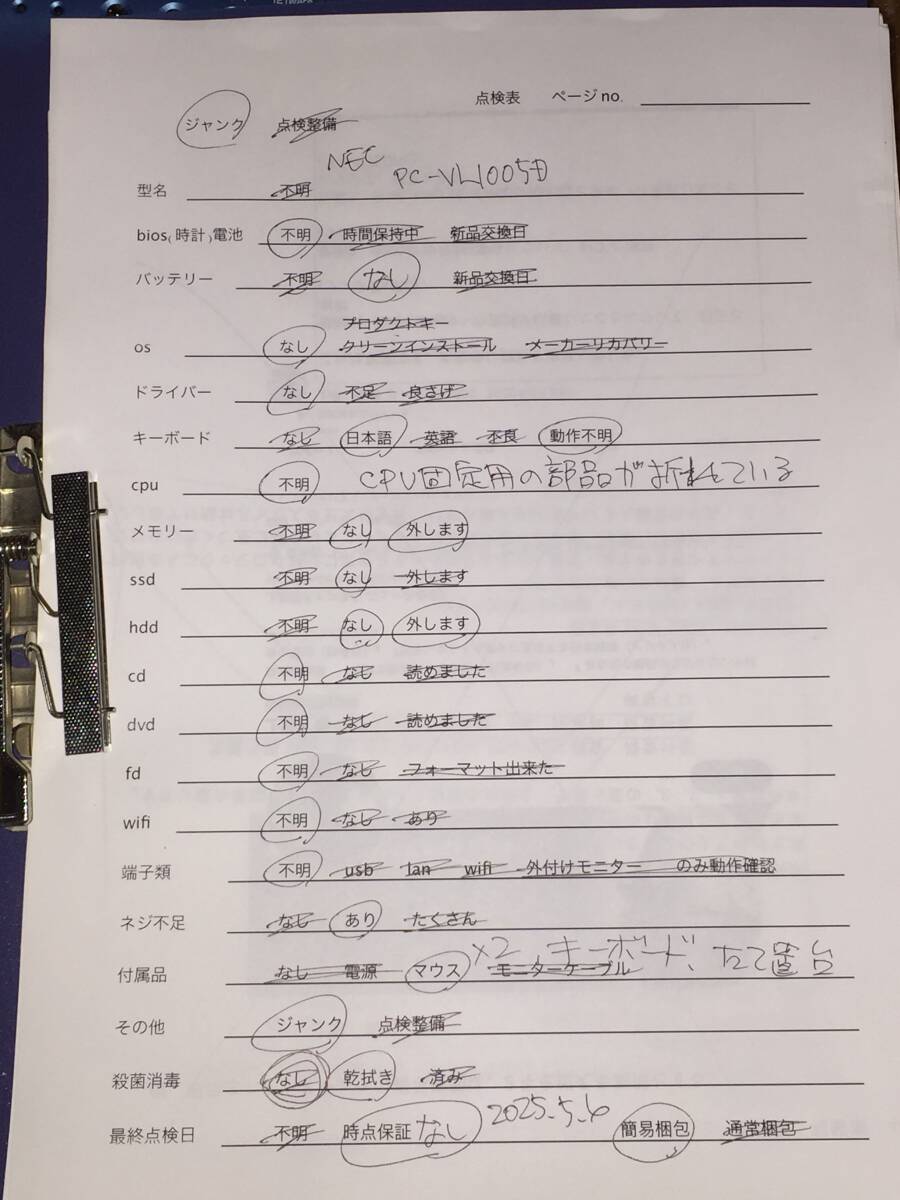 点検表 ページno.
ジャンク 点検整備
NEC
型名 不明 PC-VL1005D
bios(時計)電池 不明 時間保持中 新品交換日
バッテリー 不明 なし 新品交換日
プロダクトキー
os なし クリーンインストール メーカーリカバリー
ドライバー なし 不足 良さげ
キーボード なし 日本語 英語 不良 動作不明
cpu 不明 CPU固定用の部品が折れている
メモリー 不明 なし 外します
ssd 不明 なし 外します
hdd 不明 なし 外します
cd 不明 なし 読めました
dvd 不明 なし 読めました
fd 不明 なし フォーマット出来た
wifi 不明 なし あり
端子類 不明 usb lan wifi 外付けモニター のみ動作確認
ネジ不足 なし あり たくさん
付属品 なし 電源 マウス ×2 モニターケーブル キーボード、たて置台
その他 ジャンク 点検整備
殺菌消毒 なし 乾拭き 済み
最終点検日 不明 時点保証 なし 2025.5.6 簡易梱包 通常梱包